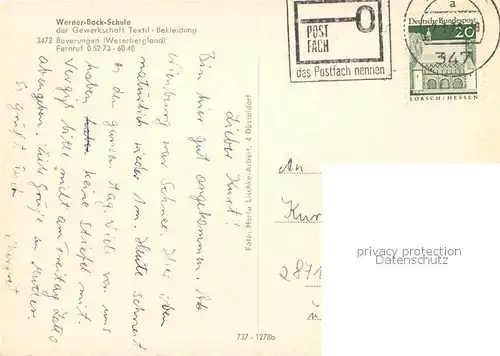 Werner-Bock-Schule
der Gewerkschaft Textil-Bekleidung
3472 Beverungen (Weserbergland)
Fernruf 0 52 73 - 60 40
POST
FACH
das Postfach nennen
a
347
Deutsche Bundespost
20
LORSCH/HESSEN
Lieber Kurt!
Bin hier gut angekommen. Ab
war Schnee. Hier
natürlich wieder. Heute schneit
es den ganzen Tag. Viele von uns
haben keine Stiefel mit.
Vergiß bitte nicht am Freitag Lotto
abzugeben. Viele Grüße an Mutter.
Es grüßt Dich
Foto: Herta Lischke-Arbert, 4 Düsseldorf
737 - 1278b
An
Kur
2871
privacy protection
Datenschutz